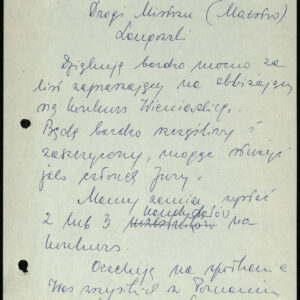 Drogi Mistrzu (Maestro)
Lamposki
Dziękuję bardzo mocno za
list zapraszający na zbliżający
się konkurs Wieniawskiego.
Będę bardzo szczęśliwy i
zaszczycony, mogąc służyć
jako członek Jury.
Mamy zamiar wysłać
kandydatów
2 lub 3 na
konkurs.
Oczekuję na spotkanie
Was wszystkich z Poznania